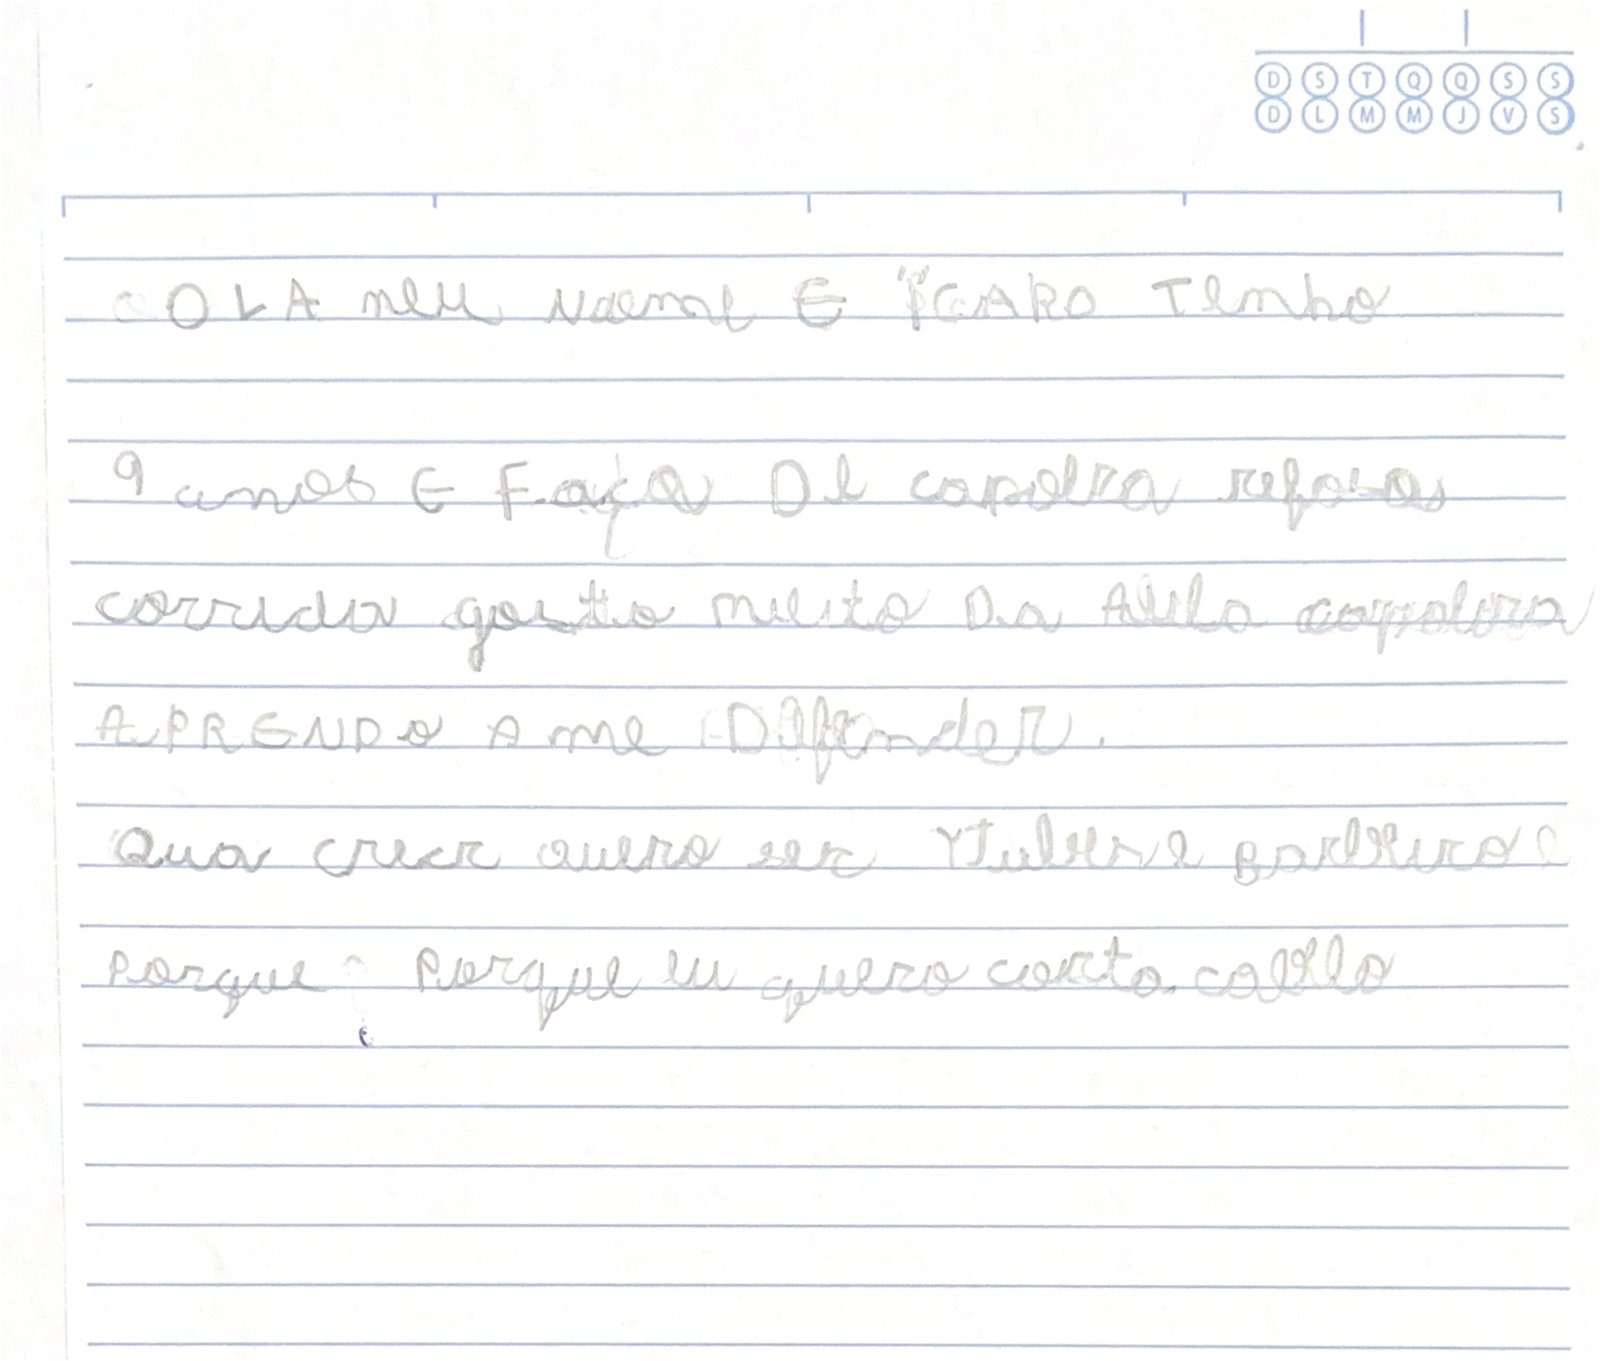 D S T Q Q S S
D L M M J V S
OLA meu Noeme E ICARO Tenho
9 anos E Faço De capoera reforso
corrida gosto muito Da Aula capoeira
APRENDO A me Defender.
Qua crecer quero ser Barbeiro
Porque Porque eu quero corta cabelo